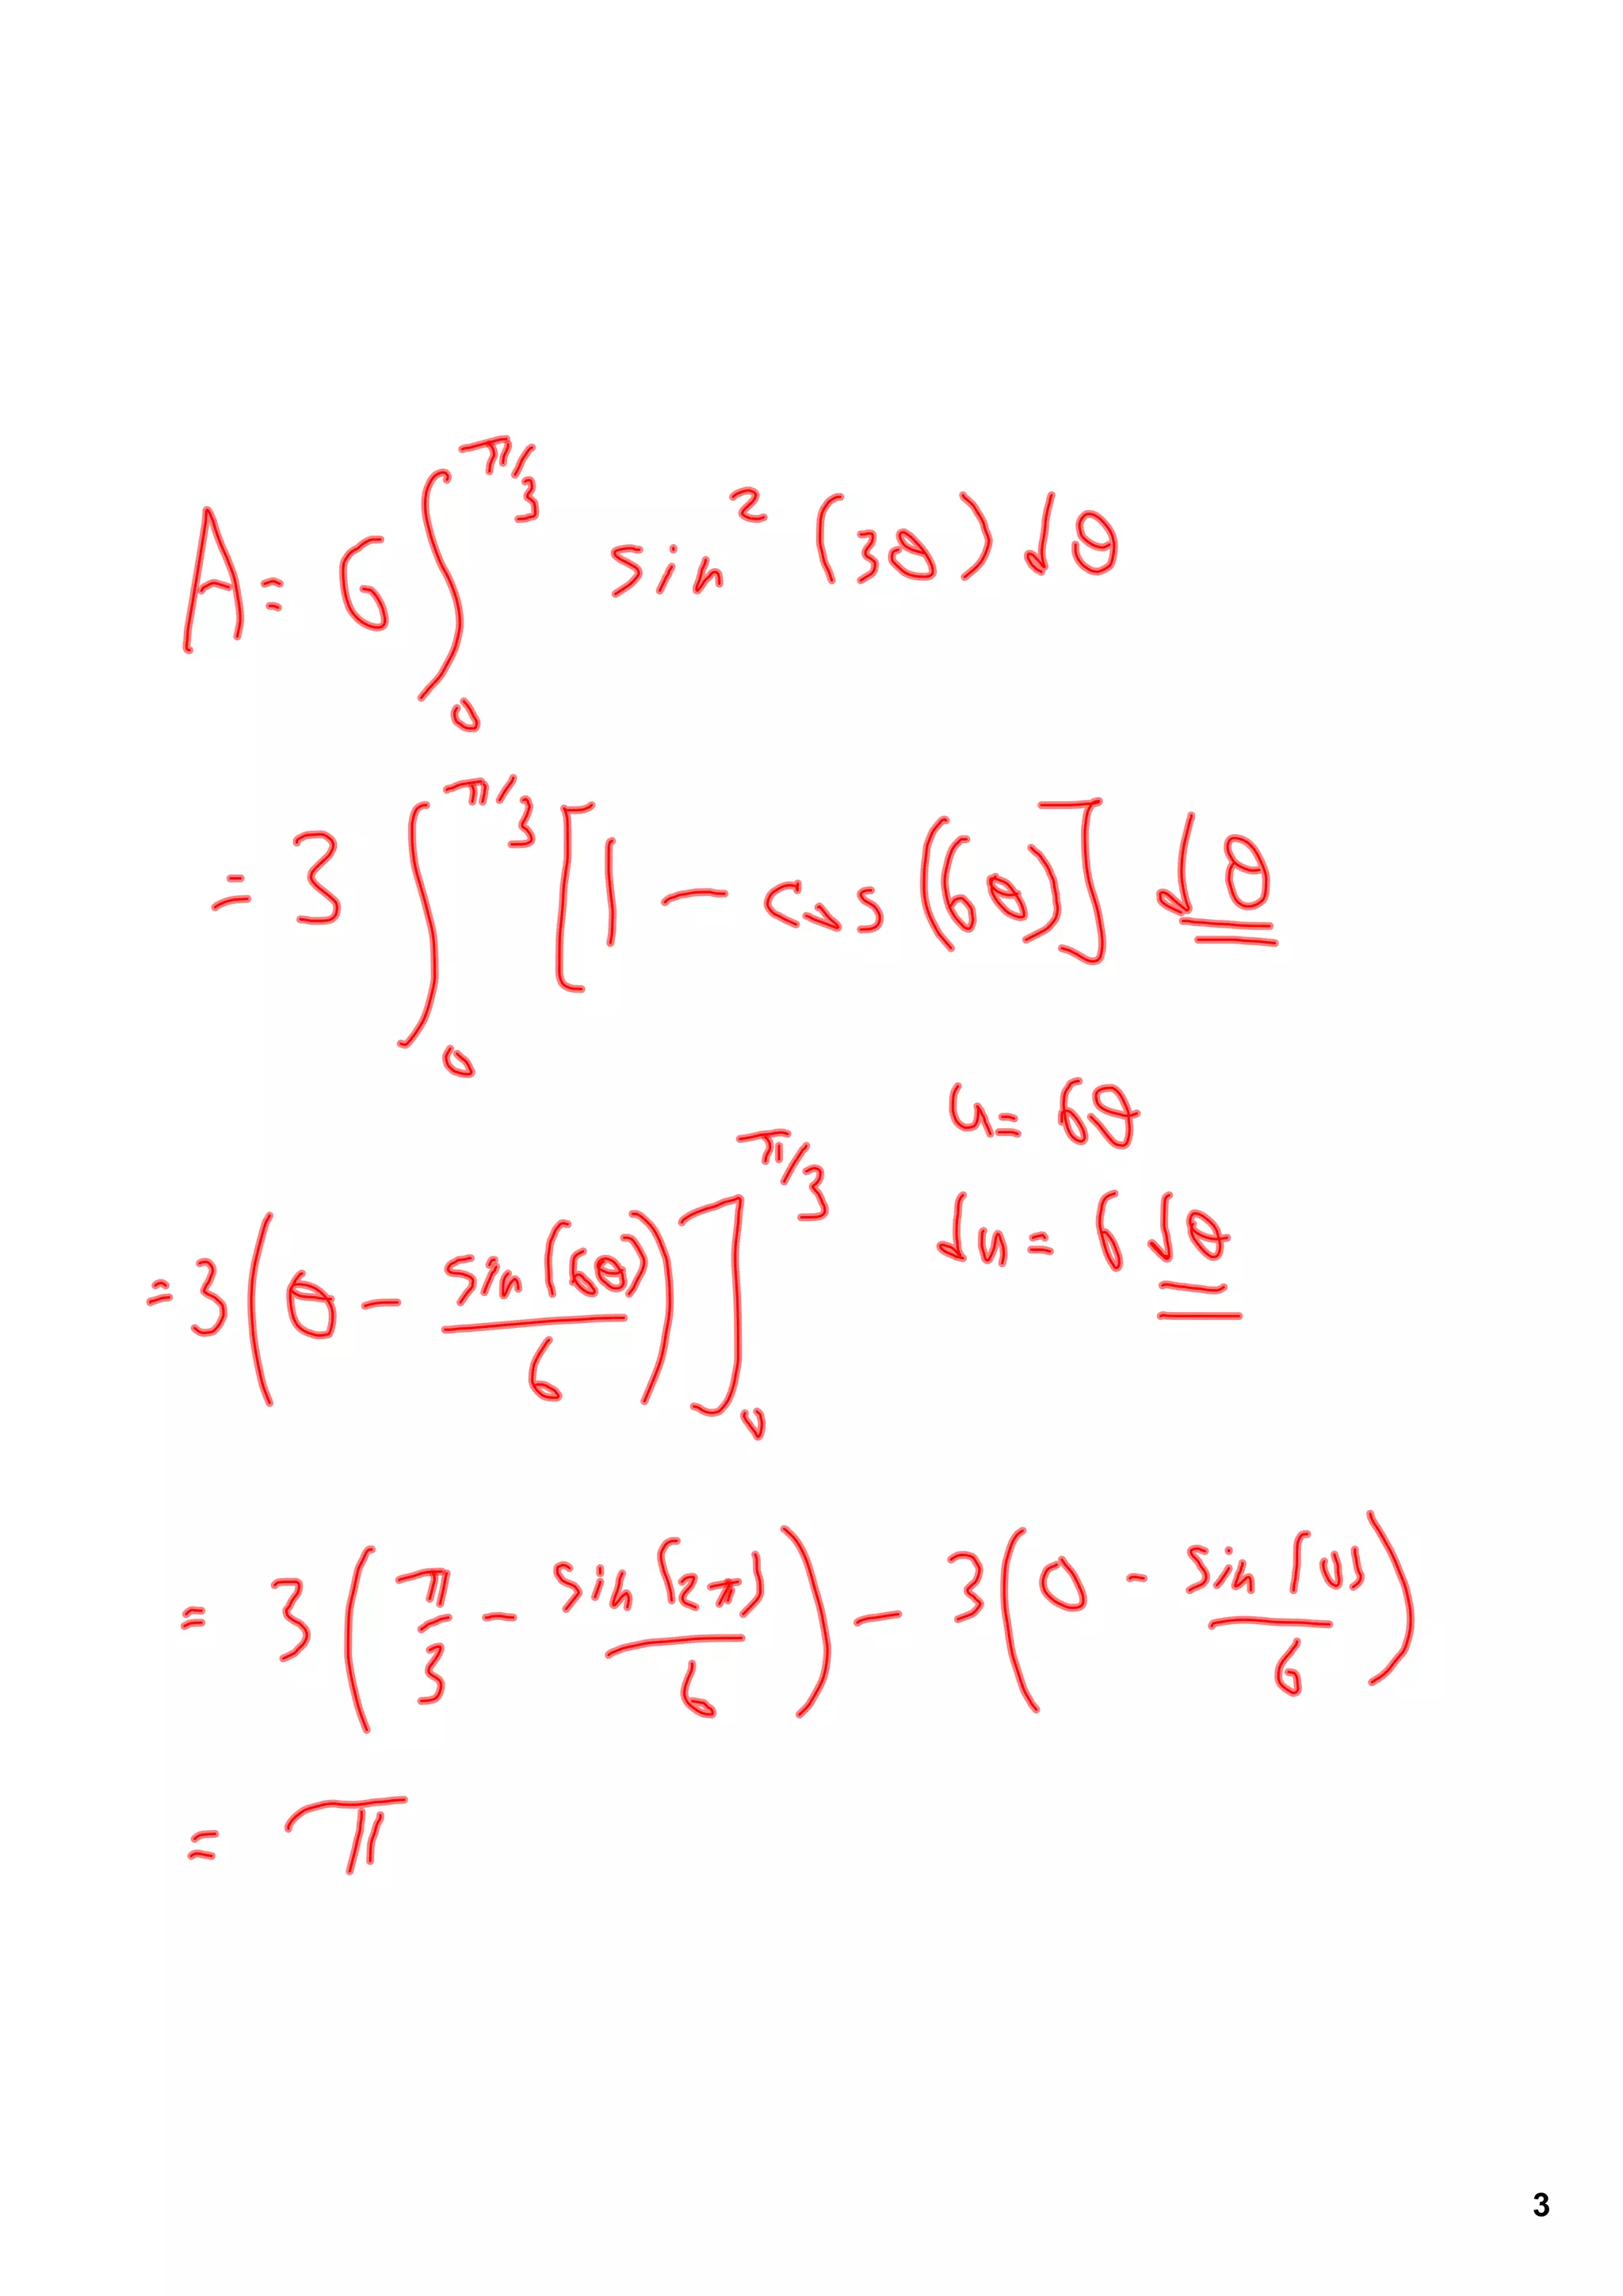 A = 6 ∫₀^{π/3} sin² (3θ) dθ
= 3 ∫₀^{π/3} [1 - cos (6θ)] dθ
u = 6θ
du = 6 dθ
= 3 (θ - sin(6θ)/6)]₀^{π/3}
= 3 (π/3 - sin(2π)/6) - 3 (0 - sin(0)/6)
= π
3